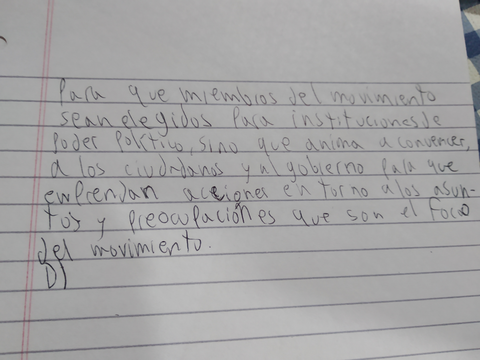 Para que miembros del movimiento
sean elegidos para instituciones de
poder político, sino que anima a convencer,
a los ciudadanos y al gobierno para que
emprendan acciones en torno a los asun-
tos y preocupaciones que son el foco
del movimiento.
D)